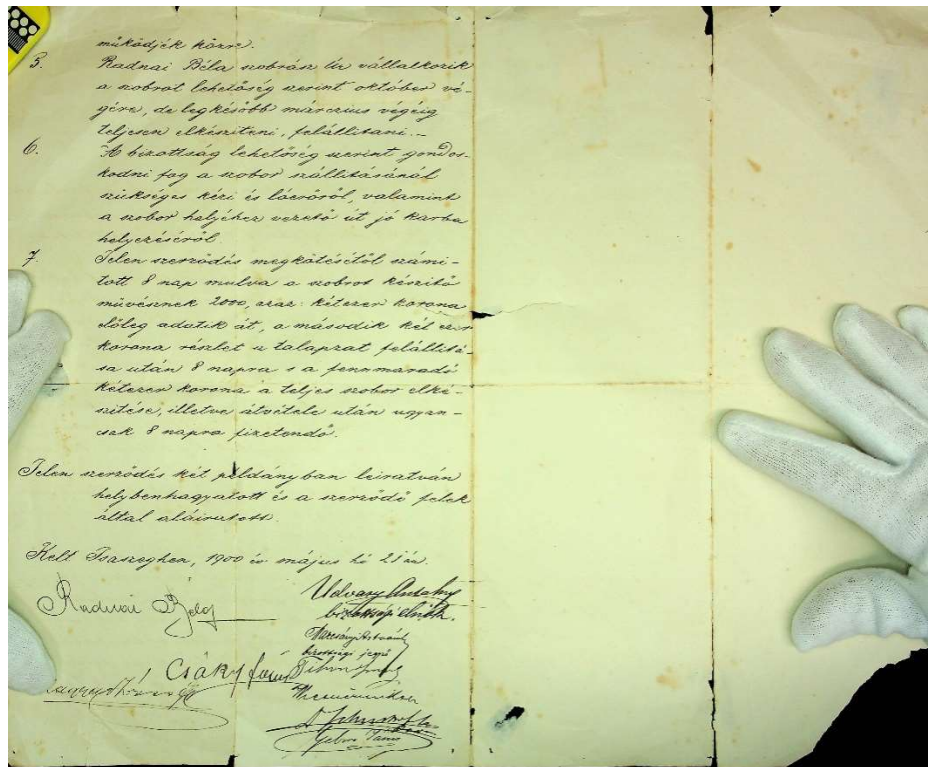 működjék közre.
5. Radnai Béla szobrász úr vállalkozik
a szobrot lehetőség szerint október vé-
gére, de legkésőbb márczius végéig
teljesen elkésziteni, felállitani.-
6. A bizottság lehetőség szerint gondos-
kodni fog a szobor szállitásánál
szükséges kézi és lóerőről, valamint
a szobor helyéhez vezető út jó karba
helyezéséről.
7. Jelen szerződés megkötésétől számi-
tott 8 nap mulva a szobrot készitő
művésznek 2000, azaz: kétezer korona
előleg adatik át, a második két ezer
korona részlet a talapzat felállitá-
sa után 8 napra s a fennmaradó
kétezer korona a teljes szobor elké-
szitése, illetve átvétele után ugyan-
csak 8 napra fizetendő.
Jelen szerződés két példányban leiratván
helybenhagyatott és a szerződő felek
által aláiratott.
Kelt Isaszeghen, 1900 év május hó 21 én.
Radnai Béla
Udvary Antal
bizottsági elnök.
bizottsági jegyző
Csáky